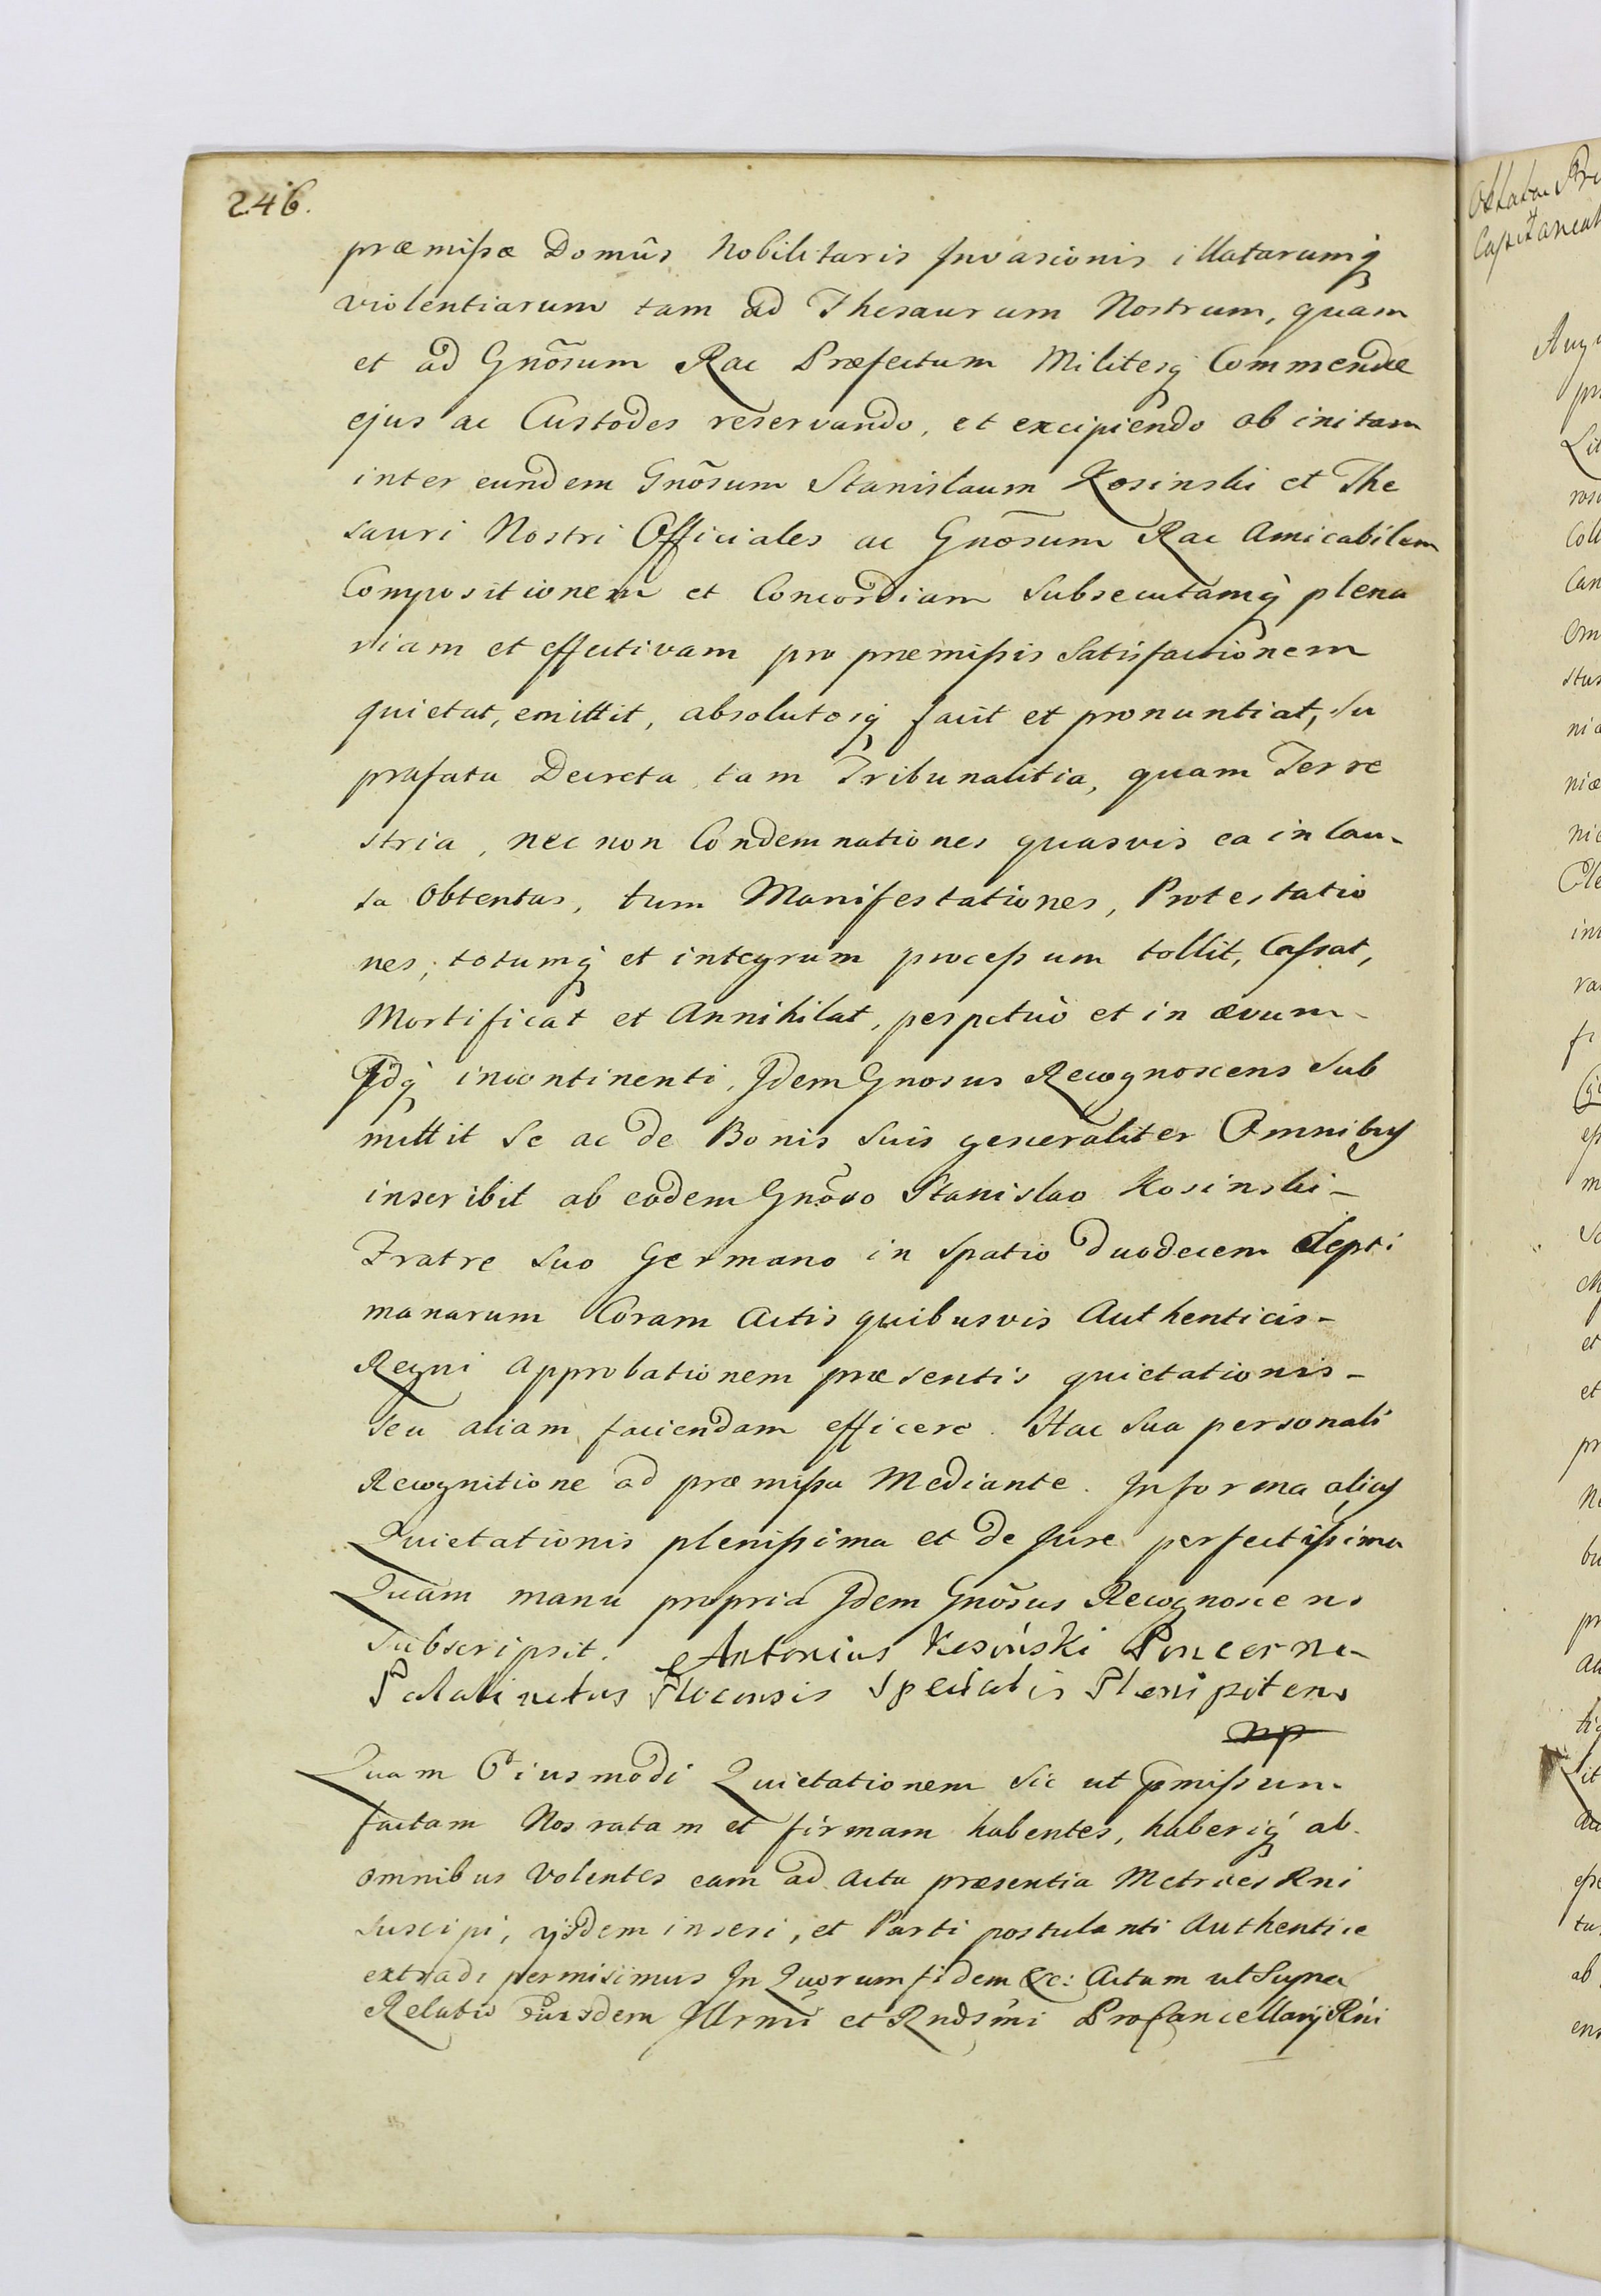 246.
præmissæ Domûs Nobilitaris Invasionis illatarumq̃
violentiarum tam ad Thesaurum Nostrum, quam
et ad Gnõsum Rac Præfectum Militesq̃ Commendæ
ejus ac Custodes reservando, et excipiendo ob initam
inter eundem Gnõsum Stanislaum Kosinski et The
sauri Nostri Officiales ac Gnõsum Rac Amicabilem
Compositionem et Concordiam Subsecutamq̃ plena
riam et effectivam pro præmissis Satisfactionem
quietat, emittit, absolutosq̃ facit et pronuntiat, Su
præfata Decreta tam Tribunalitia, quam Terre
stria, nec non Condemnationes quasvis ea in Cau-
sa Obtentas, tum Manifestationes, Protestatio
nes, totumq̃ et integrum processum tollit, Cassat,
Mortificat et Annihilat, perpetuò et in ævum-
Idq̃ incontinenti, Idem Gnosus Recognoscens Sub
mittit Se ac de Bonis Suis generaliter Omnibus
inscribit ab eodem Gnõso Stanislao Kosinski-
Fratre Suo Germano in Spatio Duodecem Septi
manarum Coram Actis quibusvis Authenticis-
Regni Approbationem præsentis quietationis-
Seu aliam faciendam efficere. Hac Sua personali
Recognitione ad præmissa Mediante. In forma alias
Quietationis plenissima et de Jure perfectissima
Quam manu propria Idem Gnõsus Recognoscens
Subscripsit. Antonius Kosiński Pincerna-
Palatinatus Plocensis Specialis Plenipotens
mp
Quam Eiusmodi Quietationem Sic ut pmissum-
factam Nos ratam et firmam habentes, haberiq̃ ab-
omnibus Volentes eam ad Acta præsentia Metrices Rni
Suscipi, ijsdem inseri, et Parti postulanti Authentice
extradi permisimus In Quorum fidem &c: Actum ut Supra
Relatio Eiusdem Illrmi et Rndsmi Procancellarij Rni